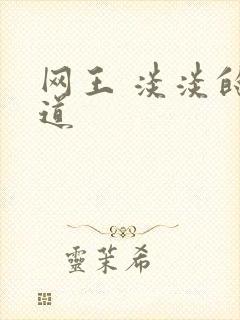 网王 淡淡的
道
靈茉希